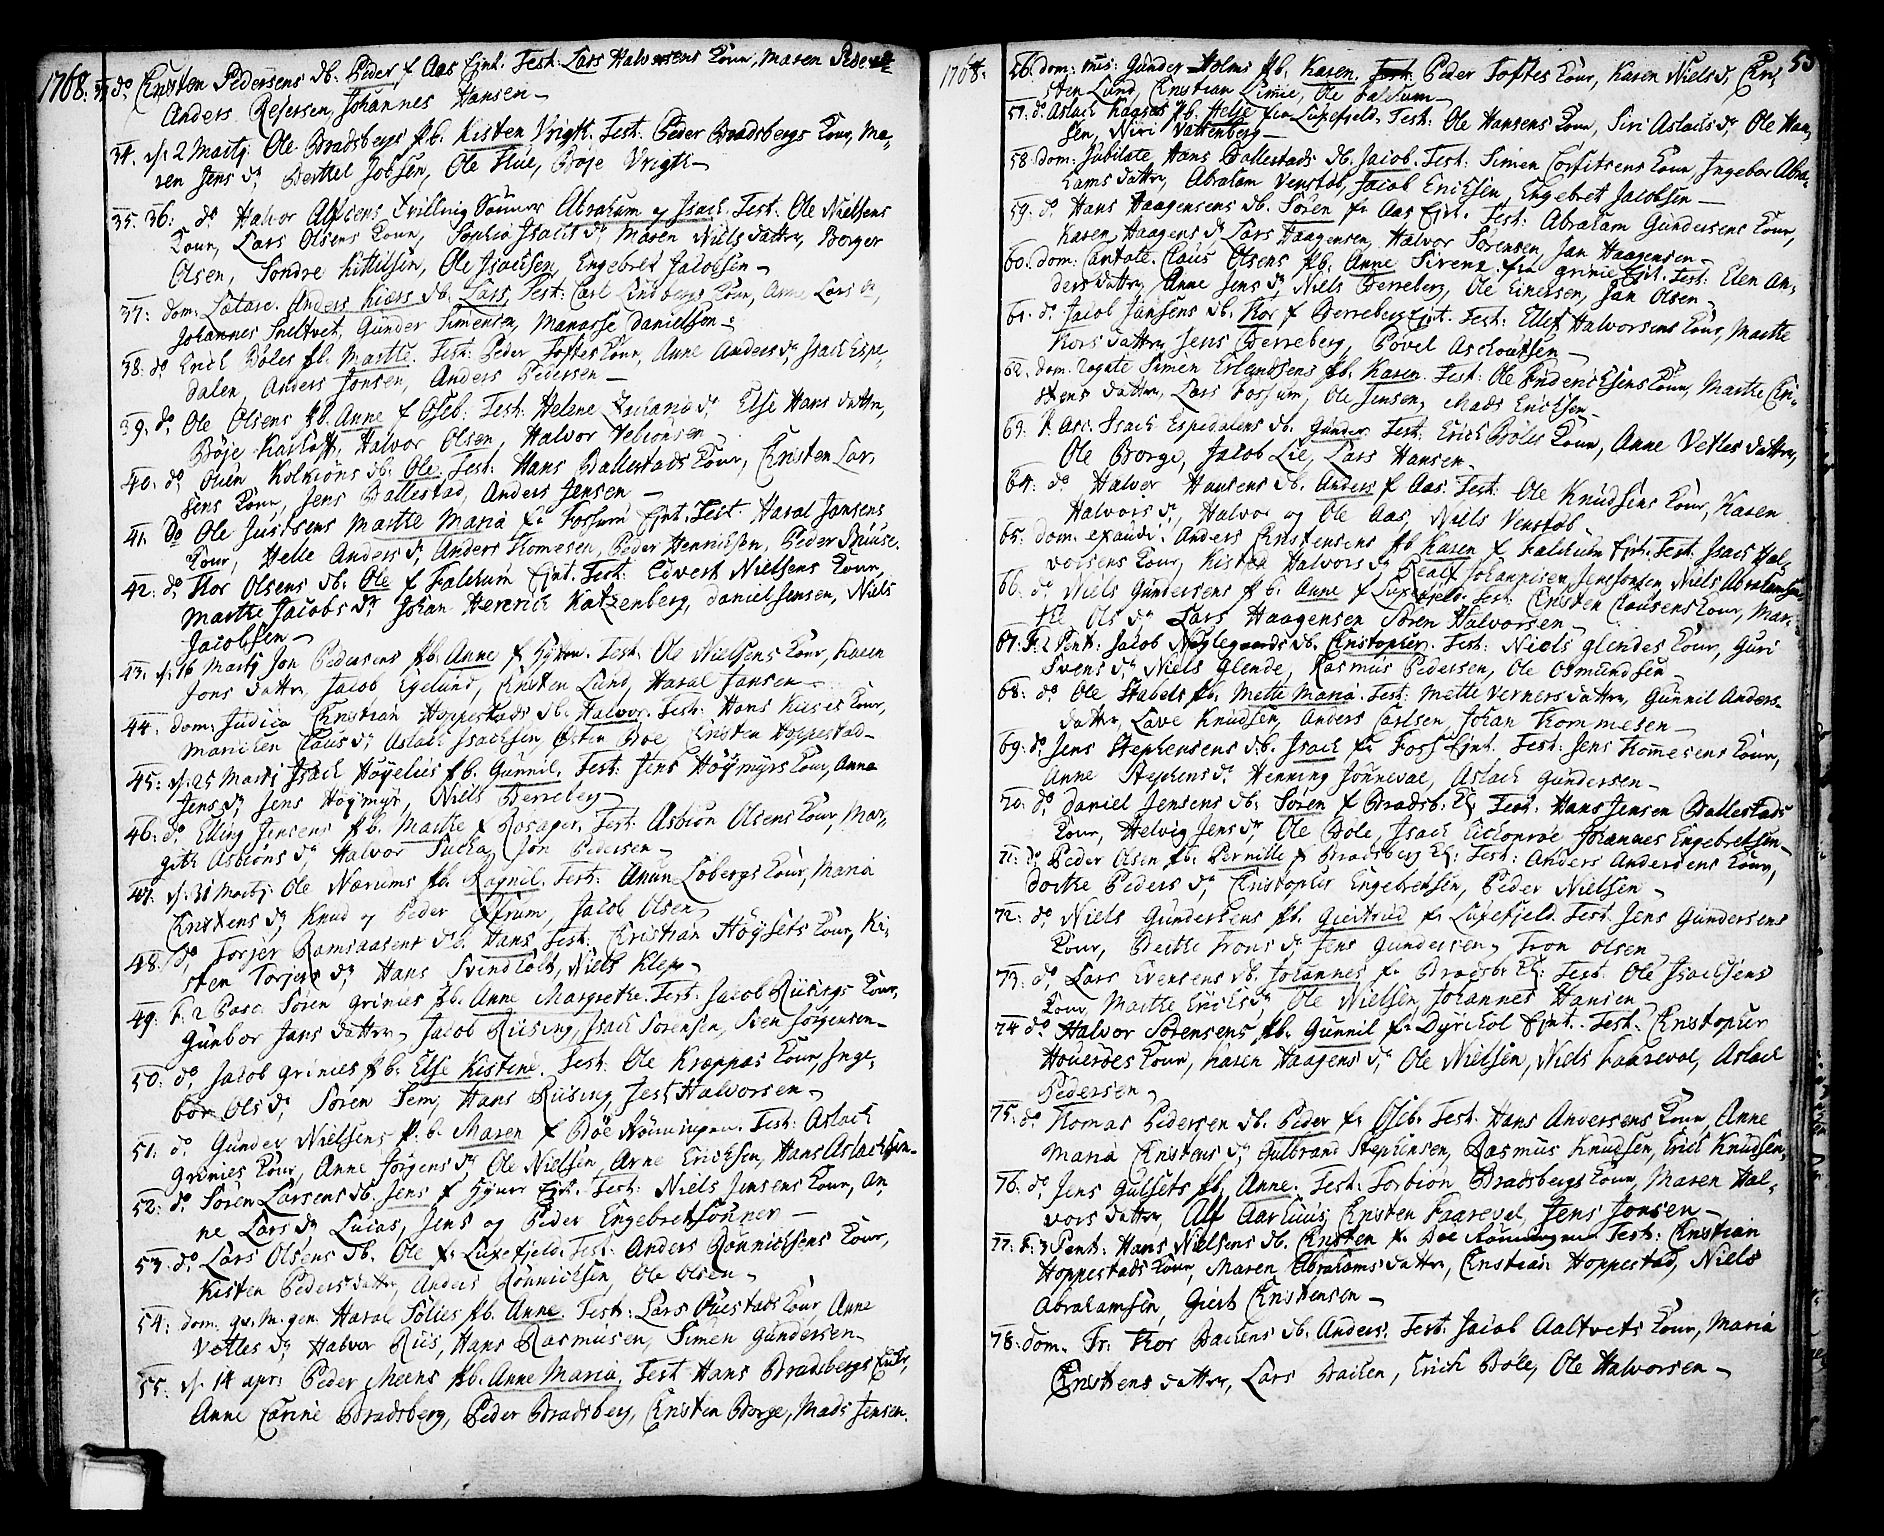 1768. 33. do Christen Pedersens db. Peder f Aas Ejnt. Test: Lars Halvorsens Kone, Maren
Anders Johannes Hansen
34. d. 2 Martj Ole Bradsbergs pb. Kisten Vrigt. Test: Peder Bradsbergs Kone, Ma-
ren Jens dr Berthel Jobsen, Ole Flue, Boje Vrigt
35. 36: do Halvor Tvilling Sønner Abraham og Isach. Test: Ole Nielsens
Kone, Lars Olsens Kone, Sophia Isachs dr Maren Niels datter, Borger
Olsen, Sondre Kittilsen, Ole Isachsen, Engebret Jacobsen
37: dom: Lætare. Anders Kiærs db. Lars, Test: Carl Lindbergs Kone, Anne Lars dr,
Johannes Sneltvet, Gunder Simensen, Manasse Danielsen
38: do Erich Bøles pb. Marthe. Test: Peder Toftes Kone, Anne Anders dr, Isach Espe-
dalen, Anders Jonsen, Anders Pedersen
39: do Ole Olsens pb. Anne f Oseb: Test: Helene Zacharia dr Else Hans datter,
Bøje Halvor Olsen, Halvor Vebionsen
40: do Ouen db: Ole. Test: Hans Ballestads Kone, Christen Lar-
sens Kone, Jens Ballestad, Anders Jensen
41. Do Ole Justsens Marthe Maria fr Fossum Ejnt. Test: Haral Jansens
Kone, Helle Anders dr Anders Thomesen, Peder Henrichsen, Peder
42: do Thor Olsens db: Ole f Falchum Ejnt. Test: Edvert Nielsens Kone,
Marthe Jacobs dr Johan Henrich Katzenberg, Daniel Jensen, Niels
Jacobsen
43. d. 16 Martj Jon Pedersens pb. Anne f Test: Ole Nielsens Kone, Karen
Jons datter, Jacob Egelund, Christen Lund, Haral Jansen
44. dom: Judica Christian Hoppestads db. Halvor. Test: Hans Kone,
Marichen Claus dr Aslach Isachsen, Østen Boe Christen Hoppestad
45: d. 25 Martj Isach Høyelius pb. Gunnil. Test: Jens Høymyrs Kone, Anna
Jens dr Jens Høymyr, Niels Berreberg
46: do Elling Jensens pb. Marthe f Test: Asbiøn Olsens Kone, Mar-
git Asbiøns dr Halvor Jon Pedersen
47. d. 31 Martj: Ole Nærums pb. Ragnil. Test: Løbergs Kone, Maria
Christens dr Knud og Peder Jacob Olsen
48. do Torjer Ramsaasens db. Hans. Test: Christian Høysets Kone, Ki-
sten Torjers dr Hans Svindholt, Niels Klep
49: F. 2 Pasc. Søren Grinies pb. Anne Margrethe. Test: Jacob Riisings Kone,
Gunbor Jans datter, Jacob Riising, Isach Sørensen, Sven Jørgensen
50: do Jacob Grinies pb. Else Kistine. Test: Ole Kræppas Kone, Inge-
bor Ols dr, Søren Sem, Hans Riising, Jens Halvorsen
51: do Gunder Nielsens p.b. Maren f Bøe Rønningen. Test: Aslach
Grinies Kone, Anne Jørgens dr Ole Nielsen, Arne Erichsen, Hans Aslachsen
52: do Søren Larsens db. Jens f Gjnt. Test: Niels Jensens Kone, An-
ne Lars dr Lucas, Jens og Peder Engebretsønner
53. do Lars Olsens db. Ole fr Luxefjeld. Test: Anders Rønnichsens Kone,
Kisten Peders datter, Anders Rønnichsen, Ole Olsen
54: dom: qv. M. gen. Haral Sølies pb. Anne. Test: Lars Kone, Anne
Vetles dr Halvor Riis, Hans Rasmusen, Simen Gundersen
55: d. 14 apr: Peder Meens pb. Anne Maria. Test Hans Bradsbergs
Anne Carine Bradsberg, Peder Bradsberg, Christen Borge, Mads Jensen.
1768. 53
56. dom: mis: Gunder Holms pb. Karen. Test: Peder Toftes Kone, Karen Niels dr, Chri-
sten Lund, Christian Limie, Ole Falkum
57. do Aslach Haagens pb. Helje fra Luxefjeld. Test: Ole Hansens Kone, Siri Aslachs dr, Ole Han-
sen, Niri Vattenberg
58. dom: Jubilate, Hans Ballestads db. Jacob. Test: Simen Kone, Ingebor Abra-
hams datter, Abraham Venstøb, Jacob Erichsen, Engebret Jacobsen
59. do Hans Haagensens db. Søren fr Aas Ejnt. Test: Abraham Gundersens Kone,
Karen Haagens dr Lars Haagensen, Halvor Sørensen, Jan Haagensen
60. dom: Cantate. Claus Olsens pb. Anne Sirene fra Grinie Ejnt. Test: Elen An-
ders datter, Anne Jens dr Niels Berreberg, Ole Einersen, Jan Olsen
61. do Jacob Jansens db. Thor f Berreberg Ejnt. Test: Ellef Halvorsens Kone, Marthe
Thors datter, Jens Berreberg, Povel Aschoutsen
62. dom. Rogate Simen Erlandsens pb. Karen. Test: Ole Friderichsens Kone, Marthe Chri-
stens datter, Lars Fossum, Ole Jensen, Mads Erichsen
63. F. Asc: Isach Espedalens db. Gunder. Test: Erich Bøles Kone, Anne Vetles datter,
Ole Borge, Jacob Lie, Lars Hansen
64: do Halvor Hansens db. Anders f Aas. Test: Ole Knudsens Kone, Karen
Halvors dr, Halvor og Ole Aas, Niels Venstøb
65: dom. exaudi. Anders Christensens pb Karen f Falchum Ejnt. Test: Isach Hal-
vorsens Kone, Kisten Halvors dr Johannisen, Jens Jonsen, Niels Abrahamsen
66. do Niels Gundersens pb. Anne f Luxefjeld. Test: Christen Clausens Kone, Mar-
the Ols dr Lars Haagensen Søren Halvorsen
67. F. 2 Pent: Jacob Nøglegaards db. Christopher. Test: Niels Glendes Kone, Guri
Svens dr Niels Glende, Rasmus Pedersen, Ole Osmundsen
68: do Ole Stabels pb. Mette Maria. Test: Mette Verners datter, Gunnil Anders-
datter, Lave Knudsen, Anders Carlsen, Johan Thommesen
69: do Jens Stephensens d.b. Isach fr Foss Ejnt. Test: Jens Thomesens Kone,
Anne Stephens dr Henning Jønneval, Aslach Gundersen
70: do Daniel Jensens db: Søren f Bradsb. Ej: Test: Hans Jensen Ballestads
Kone, Helvig Jens dr Ole Bøle, Isach Johannes Engebretsen
71: do Peder Olsen pb: Pernille f Bradsberg Ej: Test: Anders Andersens Kone,
Dorthe Peders dr Christopher Engebretsen, Peder Nielsen
72: do Niels Gundersens pb. Giertrud fr Luxefjeld. Test: Jens Gundersens
Kone, Berthe Trons dr Jens Gundersen, Tron Olsen
73. do Lars Evensens db. Johannes fr Bradsb: Ej: Test: Ole Isachsens
Kone, Marthe Erichs dr Ole Nielsen, Johannes Hansen
74 do Halvor Sørensens pb: Gunnil fr Dyrchol Ejnt. Test: Christopher
Kone, Karen Haagens dr Ole Nielsen, Niels Faareval, Aslach
Pedersen
75: do Thomas Pedersen db. Peder fr Oseb. Test: Hans Andersens Kone, Anne
Maria Christens dr Gulbrand Stephensen, Rasmus Knudsen, Erich Knudsen
76: do Jens Gulsets pb. Anne. Test: Torbiøn Bradsbergs Kone, Maren Hal-
vors datter, Alf Aarhuus, Christen Faarevel, Jens Jonsen
77: F: 3 Pent: Hans Nielsens db. Christen fr Bøe Rønningen. Test: Christian
Hoppestads Kone, Maren Abrahams datter, Christian Hoppestad, Niels
Abrahamsen, Giert Christensen
78: dom. Tr: Thor Bachens db. Anders. Test: Jacob Aaltvets Kone, Maria
Christens datter, Lars Bachen, Erich Bøle, Ole Halvorsen